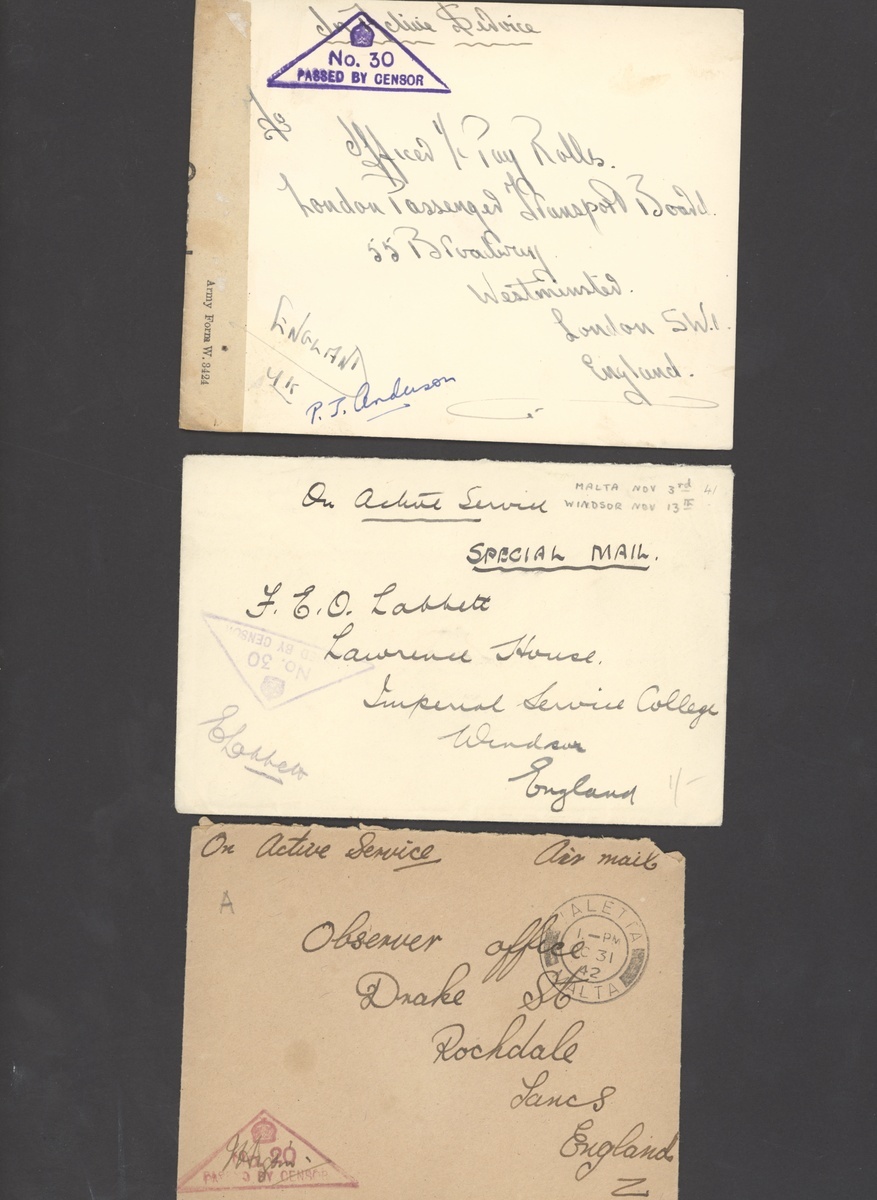 On Active Service
No. 30
PASSED BY CENSOR
To
Officer i/c Pay Rolls.
London Passenger Transport Board.
55 Broadway
Westminster.
London S.W.1.
England.
Army Form W. 3424
ENGLAND
UK
P. J. Anderson
On Active Service
MALTA NOV 3rd 41
WINDSOR NOV 13th
SPECIAL MAIL.
F. E. O. Labbett
Lawrence House.
Imperial Service College
Windsor
England
1/-
No. 30
PASSED BY CENSOR
Labbett
On Active Service
Air mail
A
VALETTA
1-PM
31
42
MALTA
Observer office
Drake St
Rochdale
Lancs
England
20
PASSED BY CENSOR